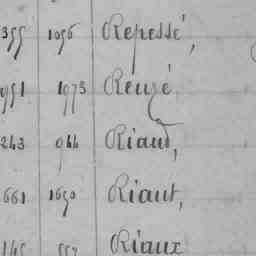 355 1056 Repessé,
951 1973 Reuzé
243 944 Riaud,
661 1650 Riaut,
Riaux